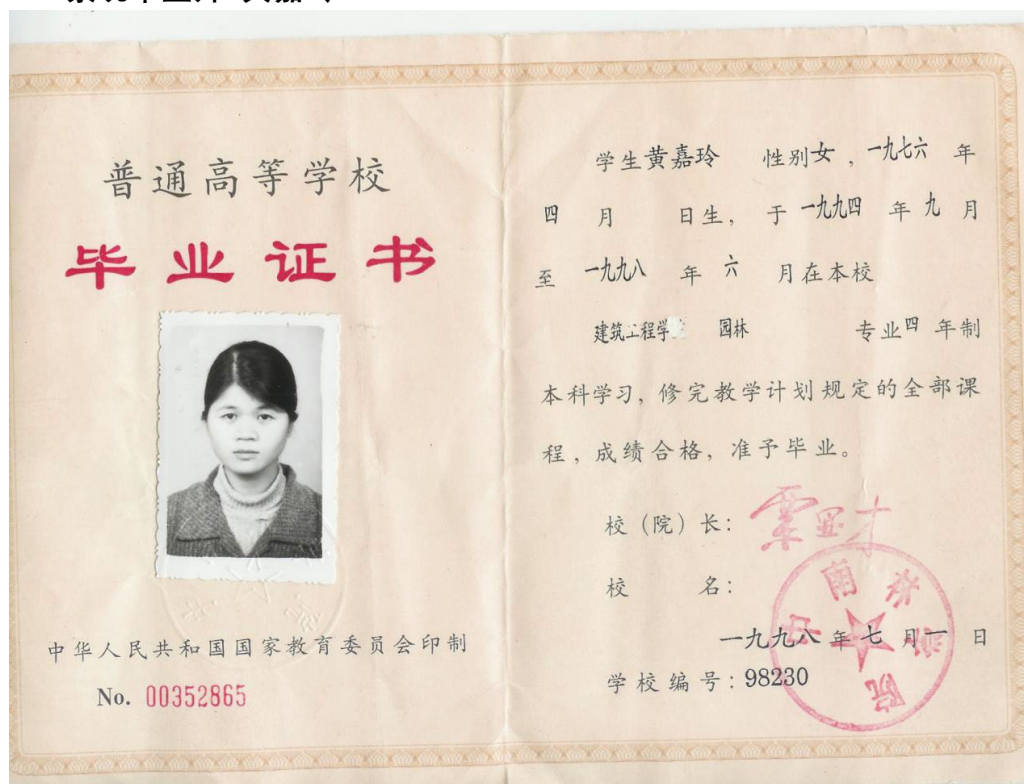 普通高等学校
毕业证书
中华人民共和国国家教育委员会印制
No. 00352865
学生黄嘉玲 性别女，一九七六 年
四 月 日生，于 一九九四 年 九 月
至 一九九八 年 六 月在本校
建筑工程学 园林 专业四 年制
本科学习，修完教学计划规定的全部课
程，成绩合格，准予毕业。
校（院）长：
校 名：
一九九八 年 七 月 一 日
学校编号：98230
中南林学院